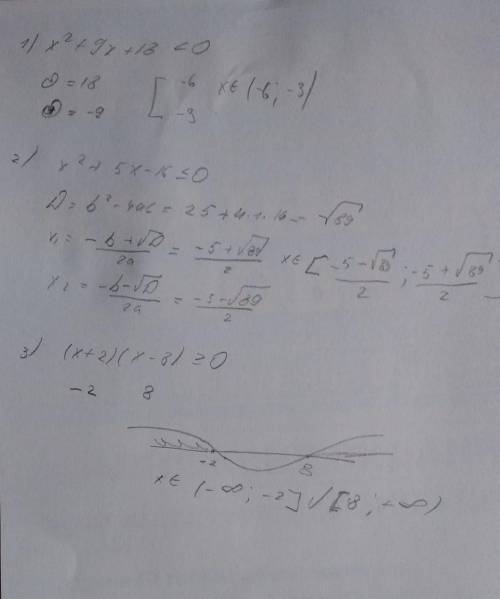 1) x² + 9x + 18 < 0
∅ = 18 [ -6 x∈ (-6; -3)
∅ = -9 -3
2) x² + 5x - 16 ≤ 0
D = b² - 4ac = 25 + 4·1·16 = √89
x₁ = (-b + √D)/2a = (-5 + √89)/2 x∈ [(-5 - √89)/2 ; (-5 + √89)/2
x₂ = (-b - √D)/2a = (-5 - √89)/2
3) (x+2)(x-8) ≥ 0
-2 8
-2 8
x∈ (-∞; -2] √ [8; +∞)